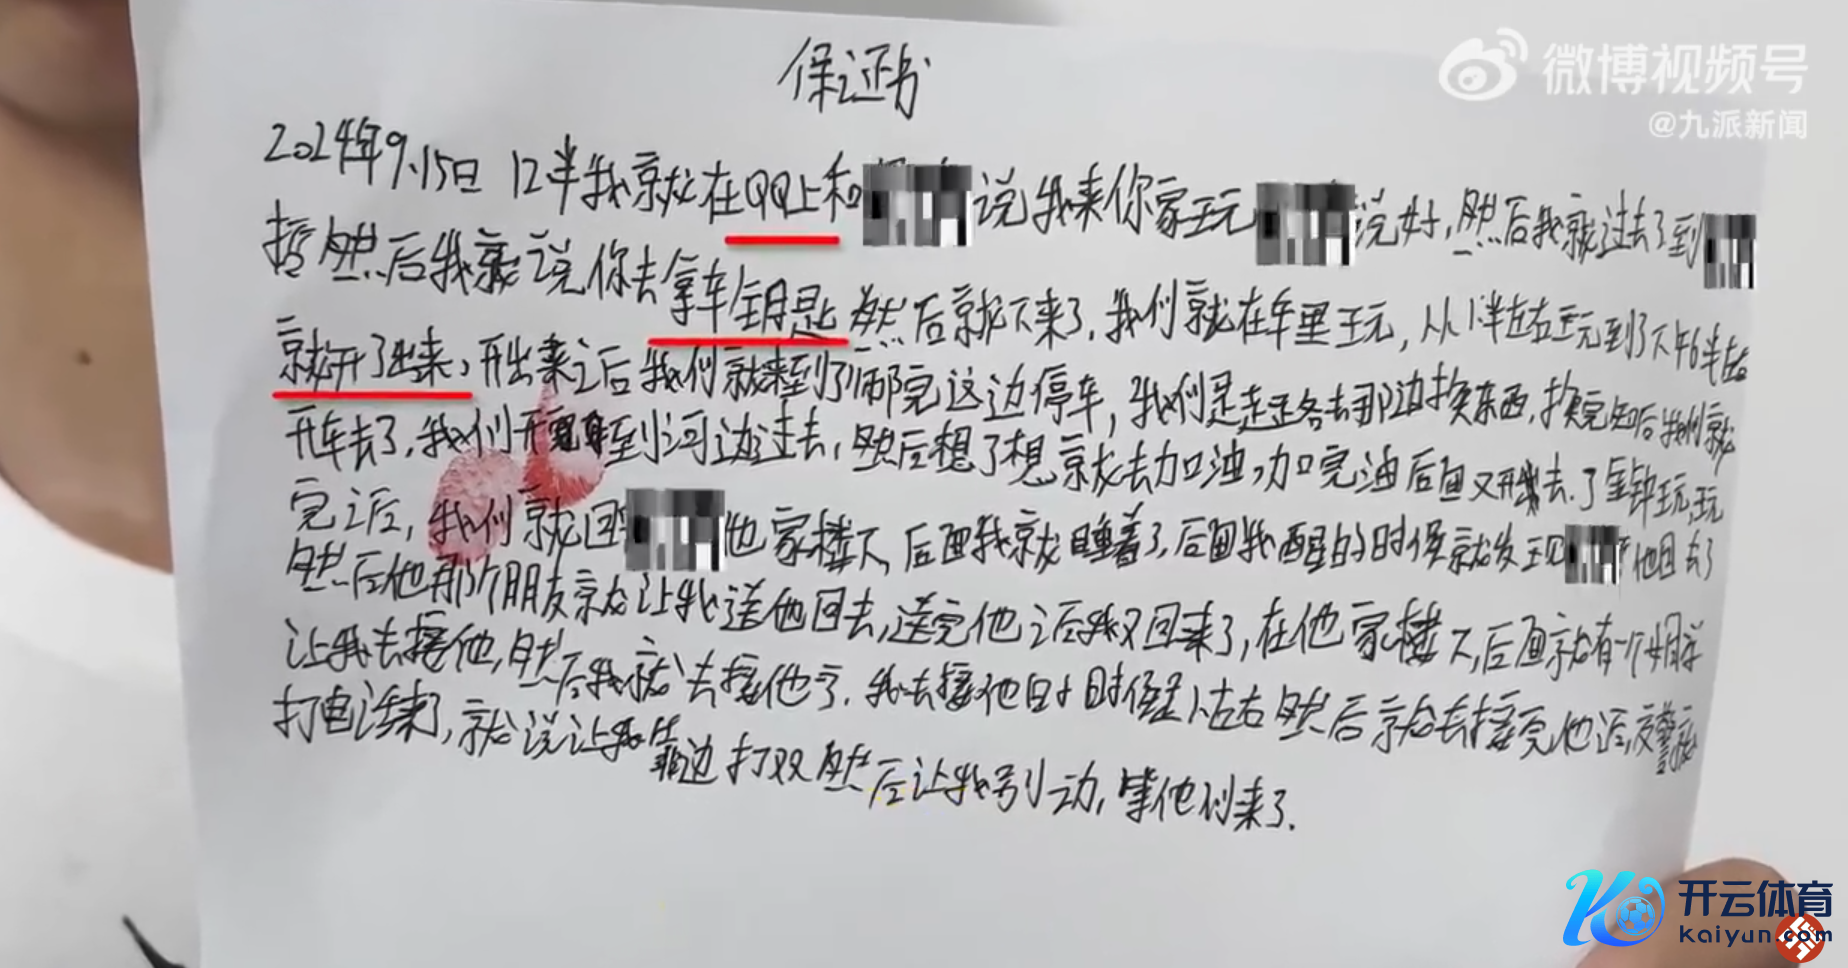 微博视频号
@九派新闻
保证书
2024年9.15日 12半我就在QQ上和 说我来你家玩 说好,然后我就过去了到
然后我就说你去拿车钥匙 然后就下来了,我们就在车里玩,从1半左右玩到了下午6半左右
就开了出来,开出来之后我们就来到了师院这边停车,我们是走路去那边换东西,换完知后我们就
开车去了,我们开 到河边过去,然后想了想就去加油,加完油后面又开 去了金钟玩,玩
完之后,我们就回 他家楼下,后面我就睡着了,后面我醒的时候就发现 他回去了
然后他那个朋友就让我送他回去,送完他之后我又回来了,在他家楼下,后面就有一个 
让我去接他,然后我就去接他了.我去接他 时候是 左右然后就去接完他后,交警就
打电话来了,就说让我靠边打双 然后让我别动,等他们来了.
开云体育
kaiyun.com